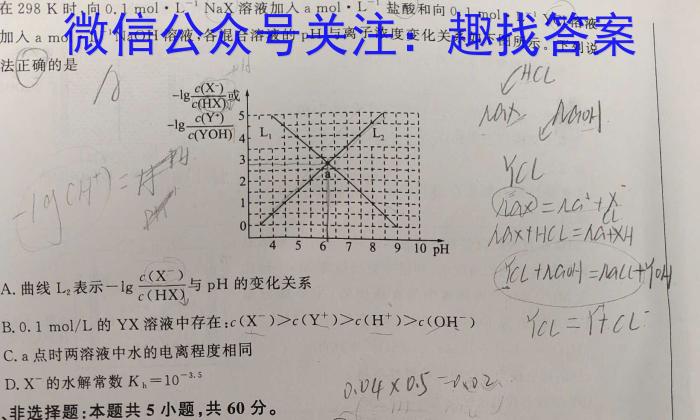 在 298 K 时,向 0.1 mol·L⁻¹ NaX 溶液加入 a mol·L⁻¹ 盐酸和向 0.1 mol·L⁻¹ YCl 溶液
加入 a mol·L⁻¹ NaOH 溶液,各混合溶液的 pH 与离子浓度变化关系如下图所示,下列说
微信公众号关注：趣找答案
法正确的是
-lg c(X⁻)/c(HX) 或
-lg c(Y⁺)/c(YOH)
5
4
3
2
1
0
L₁
L₂
a
4 5 6 7 8 9 10 pH
HCL
NaX NaOH
YCL
-lg(H⁺)=
NaX+HCL=NaX+XH
YCL+NaOH=NaCL+YOH
YCL=Y+CL⁻
A. 曲线 L₂ 表示 -lg c(X⁻)/c(HX) 与 pH 的变化关系
B. 0.1 mol/L 的 YX 溶液中存在:c(X⁻)>c(Y⁺)>c(H⁺)>c(OH⁻)
C. a 点时两溶液中水的电离程度相同
D. X⁻ 的水解常数 Kₕ=10⁻³·⁵
0.04×0.5=0.02
、非选择题:本题共 5 小题,共 60 分。